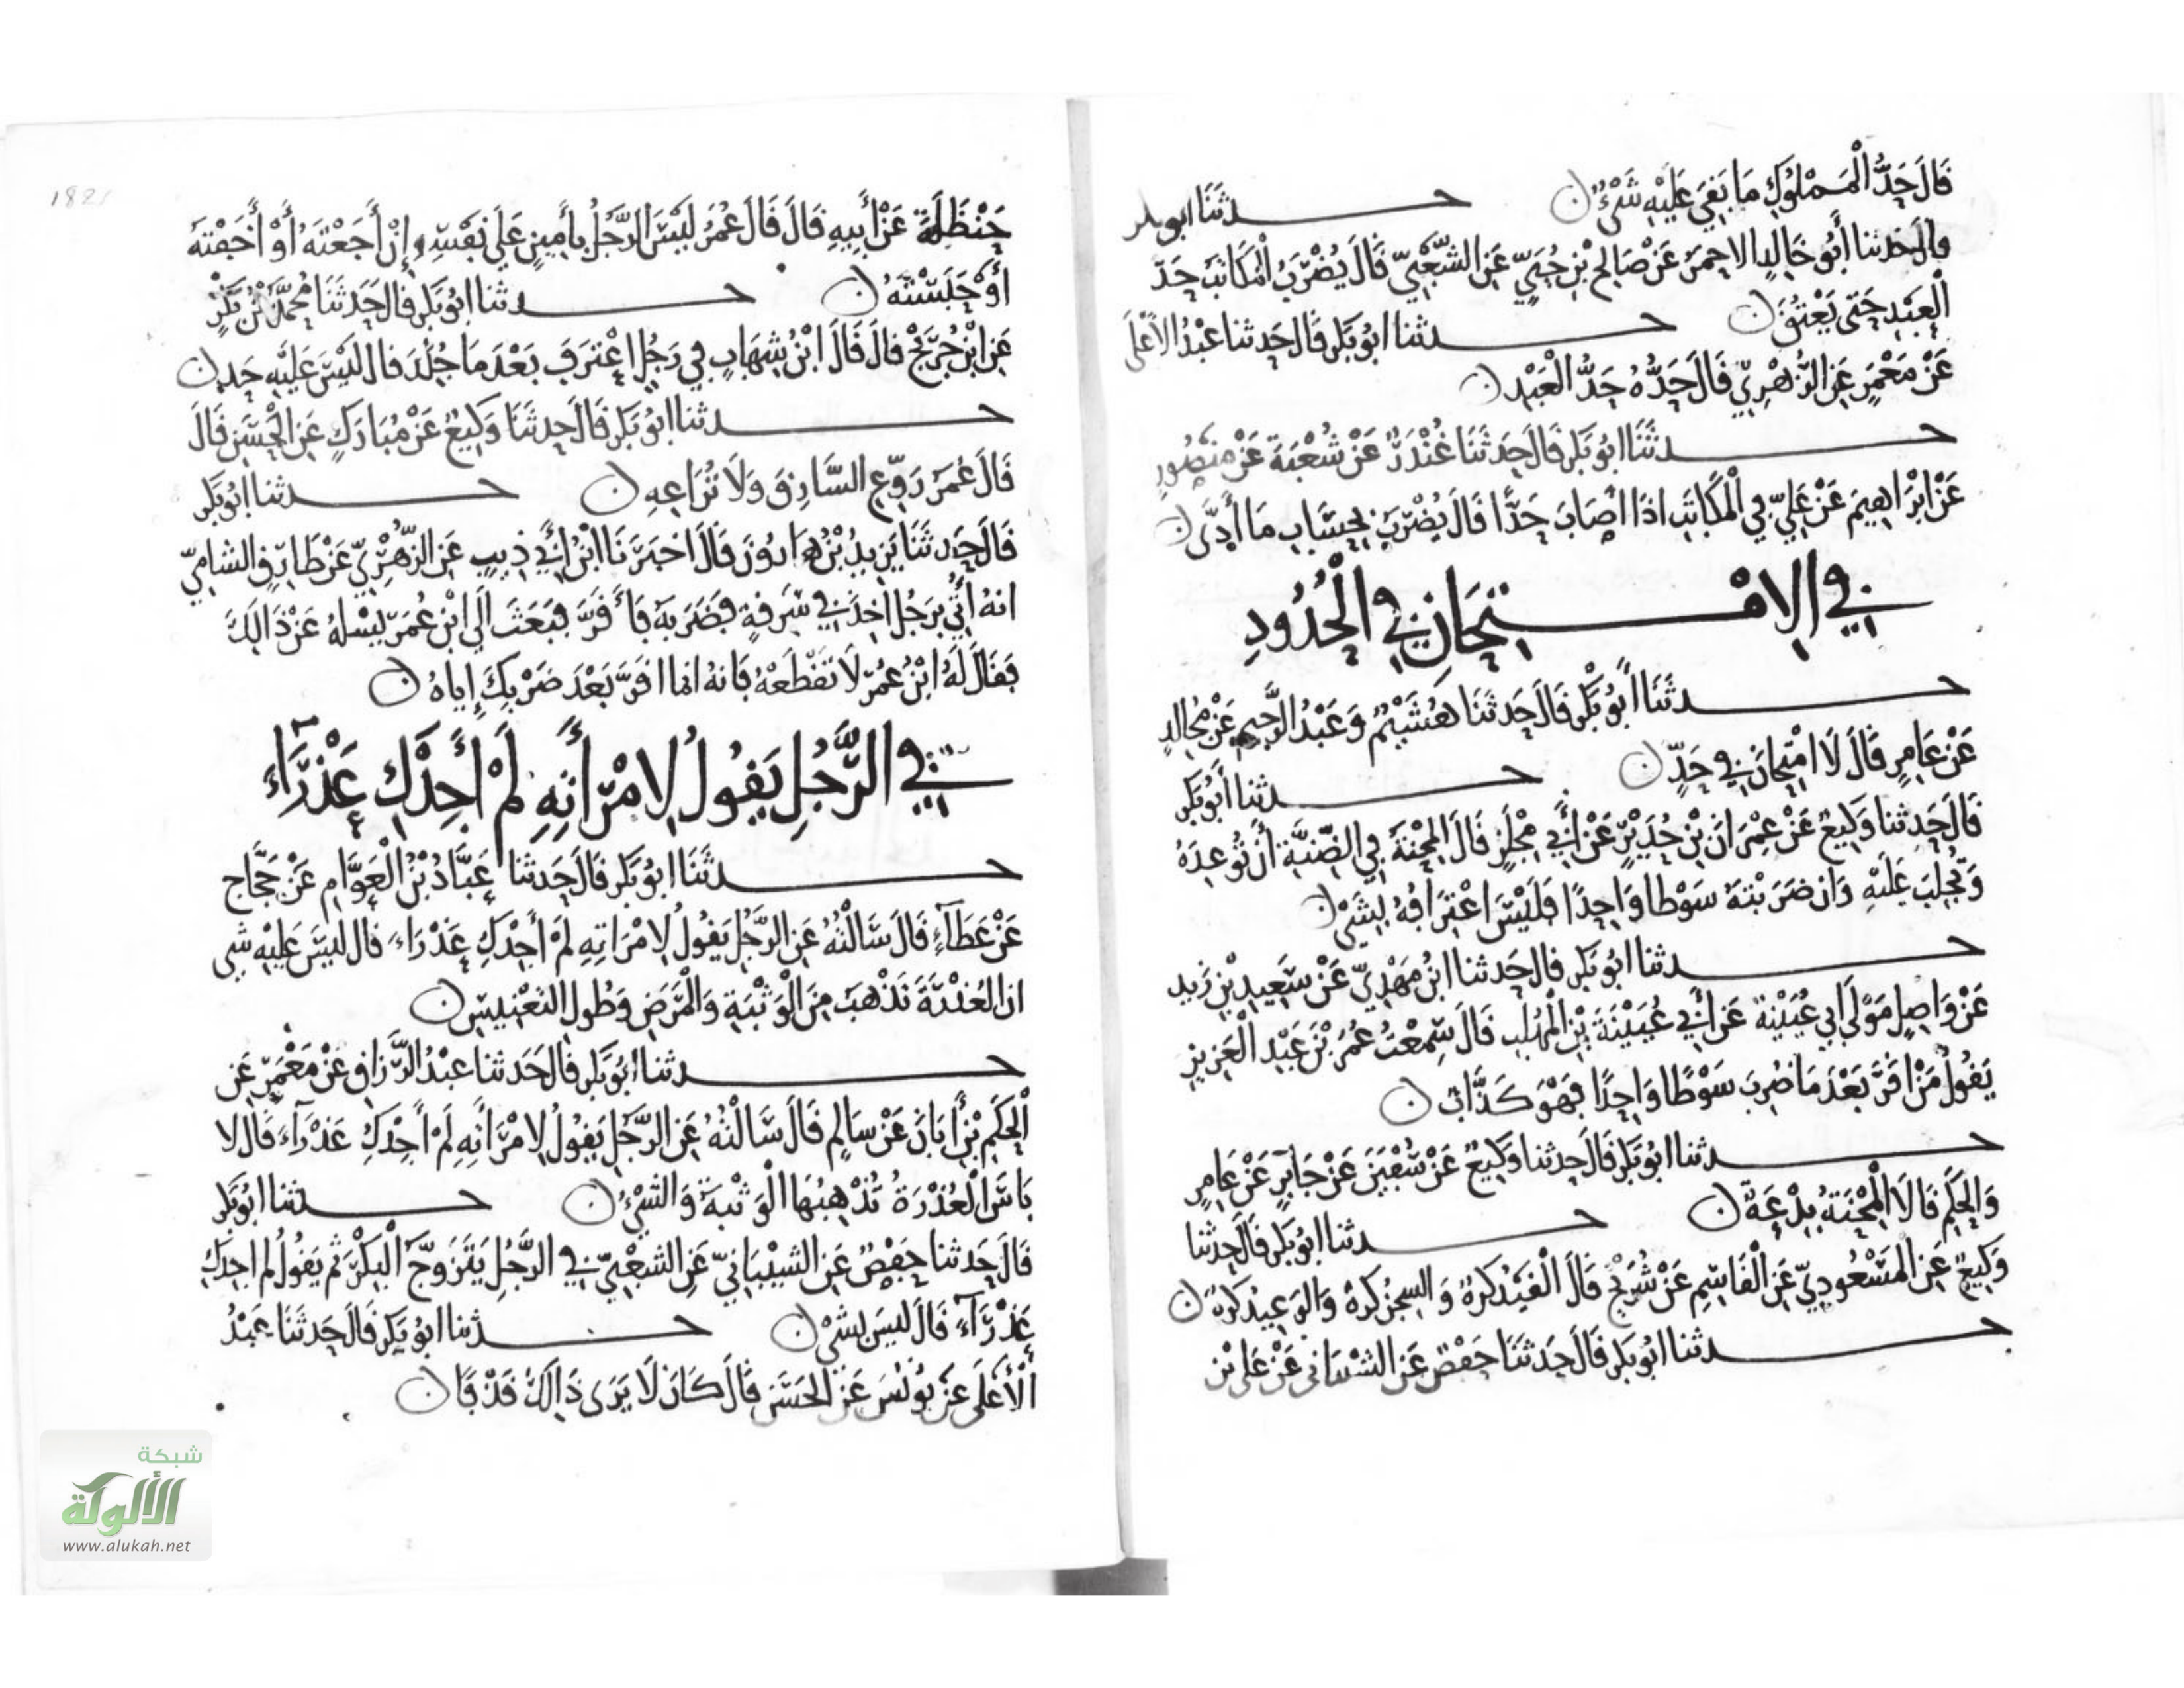 قَالَ حَدُّ الْمَمْلُوكِ مَا بَقِيَ عَلَيْهِ شَيْءٌ ن حدثنَا ابو بكر
قال حَدثنا أَبُو خَالِدٍ الاحمَرُ عَنْ صَالِحِ بْنِ حُيَيٍّ عَنِ الشَّعْبِيِّ قَالَ يُضْرَبُ الْمُكَاتَبُ حَدَّ
الْعَبْدِ حَتى يَعْتِقَ ن حدثنا ابُو بَكر قَال حَدثنا عَبْدُ الأَعْلَى
عَنْ مَعْمَرٍ عَنِ الزُّهْرِيِّ قَالَ حَدُّهُ حَدُّ الْعَبْدِ ن
حدثَنَا ابُو بَكر قَالَ حَدثَنَا غُنْدَرٌ عَنْ شُعْبَةَ عَنْ مَنصُورٍ
عَنْ ابْرَاهِيمَ عَنْ عَلِيٍّ فِي الْمُكَاتَبِ اذَا أَصَابَ حَدًّا قَالَ يُضْرَبُ بِحِسَابِ مَا أَدَّى ن
فِي الِامْتِحَانِ فِي الْحُدُودِ
حدثَنَا أَبُو بَكْر قَالَ حَدثَنَا هُشَيْمٌ وَعَبْدُ الرَّحِيمِ عَنْ مُجَالِدٍ
عَنْ عَامِرٍ قَالَ لَا امْتِحَانَ فِي حَدٍّ ن حدثنا أَبُو بَكر
قَالَ حَدثنا وَكِيعٌ عَنْ عِمْرَانَ بْنِ حُدَيْرٍ عَنْ أَبِي مِجْلَزٍ قَالَ الْمِحْنَةُ فِي الضِّنَّةِ أَنْ تُوعِدَهُ
وَتُجْلِبَ عَلَيْهِ وَان ضَرَبْتَهُ سَوْطا وَاحِدًا فَلَيْسَ اعْتِرَافُهُ بِشَيْءٍ ن
حدثنا ابُو بَكر قال حَدثنا ابْنُ مَهْدِيٍّ عَنْ سَعِيدِ بْنِ زَيد
عَنْ وَاصِلٍ مَوْلَى ابِي عُيَيْنَة عَنْ أَبِي عُيَيْنَةَ بْنِ الْمُهَلَّبِ قَالَ سَمِعْتُ عُمَرَ بْنَ عَبْدِ الْعَزِيزِ
يَقُولُ مَنْ اقَرَّ بَعْدَ مَا ضُرِبَ سَوْطًا وَاحِدًا فَهْوَ كَذَّاب ن
حدثنا ابُو بَكر قَالَ حَدثنا وَكِيعٌ عَنْ سُفْيَنَ عَنْ جَابِرٍ عَنْ عَامِرٍ
وَالْحَكَمِ قَالَا الْمِحْنَةُ بِدْعَةٌ ن حدثنا ابُو بَكر قَالَ حَدثنا
وَكِيعٌ عَنِ الْمَسْعُودِيِّ عَنِ الْقَاسِمِ عَنْ شُرَيْحٍ قَالَ الْقَيْدُ كَرْهٌ وَالسِّجْنُ كَرْهٌ وَالْوَعِيدُ كَرْهٌ ن
حدثنا ابُو بَكر قَالَ حَدثَنَا حَفْصٌ عَنِ الشَّيْبَانِي عَنْ عَلِي بْنِ
حَنْظَلَةَ عَنْ أَبِيهِ قَالَ قَالَ عُمَرُ لَيْسَ الرَّجُلُ بِأَمِينٍ عَلَى نَفْسِهِ إِنْ أَجَعْتَهُ أَوْ أَخَفْتَهُ
أَوْ حَبَسْتَهُ ن حدثنا ابُو بَكر قَال حَدثَنَا مُحَمَّدُ بْنُ بَكْرٍ
عَنِ ابْنِ جُرَيْجٍ قالَ قَالَ ابْنُ شِهَابٍ فِي رَجُلٍ اعْتَرَفَ بَعْدَ مَا جُلِدَ قال لَيْسَ عَلَيْهِ حَد ن
حدثنا ابُو بَكر قَالَ حَدثَنَا وَكِيعٌ عَنْ مُبَارَكٍ عَنِ الْحَسَنِ قَالَ
قَالَ عُمَرُ رَوِّعِ السَّارِقَ وَلَا تُرَاعِهِ ن حدثنا ابُو بَكر
قَالَ حَدثَنَا يَزِيدُ بْنُ هَارُونَ قَالَ اخْبَرَنَا ابْنُ أَبِي ذِيبٍ عَنِ الزُّهْرِيِّ عَنْ طَارِقٍ الشامِيِّ
انهُ أُتِيَ بِرَجُلٍ اخِذَ فِي سَرِقَةٍ فَضَرَبَهُ فَأَقَرَّ فَبَعَثَ الَى ابْنِ عُمَرَ يَسْلهُ عَنْ ذَالِكَ
فَقَالَ لَهُ ابْنُ عُمَرَ لَا تَقْطَعْهُ فَانهُ انمَا اقَرَّ بَعْدَ ضَرْبِكَ إِيَاهُ ن
فِي الرَّجُلِ يَقُولُ لِامْرَأَتِهِ لَمْ أَجِدْكِ عَذْرَاءَ
حدثَنَا ابُو بَكر قَالَ حَدثنا عَبَّادُ بْنُ الْعَوَّامِ عَنْ حَجَّاجٍ
عَنْ عَطَآءٍ قَالَ سَالْتُهُ عَنِ الرَّجُلِ يَقُولُ لِامْرَاتِهِ لَمْ أَجِدْكِ عَذْرَاءَ قال لَيْسَ عَلَيْهِ شي
ان الْعُذْرَةَ تَذْهَبُ مِنَ الْوَثْبَةِ وَالْمَرَضِ وَطُولِ التعْنِيسِ ن
حدثنا ابُو بَكر قَال حَدثنا عَبْدُ الرَّزاق عَنْ مَعْمَرٍ عَنِ
الْحَكَمِ بْنِ أَبَانَ عَنْ سَالِمٍ قَالَ سَالْتُهُ عَنِ الرَّجُلِ يَقُولُ لِامْرَأَتِهِ لَمْ أَجِدْكِ عَذْرَآءَ قَالَ لا
بَاسَ الْعُذْرَةُ تُذْهِبُهَا الْوَثْبَةُ وَالشيْءُ ن حدثنا ابُو بَكر
قَالَ حَدثنا حَفْصٌ عَنِ الشيْبَانِيِّ عَنِ الشعْبِيِّ فِي الرَّجُلِ يَتَزَوَّجُ الْبِكْرَ ثم يَقُولُ لم اجِدْكِ
عَذْرَآءَ قَالَ لَيسَ بِشَيْءٍ ن حدثنا ابُو بَكر قَالَ حَدثَنَا عَبْدُ
الأَعْلَى عَنْ يُونُسَ عَنِ الحَسَنِ قَالَ كَانَ لَا يَرَى ذَالِكَ قَذْفًا ن
182
شبكة
الألوكة
www.alukah.net